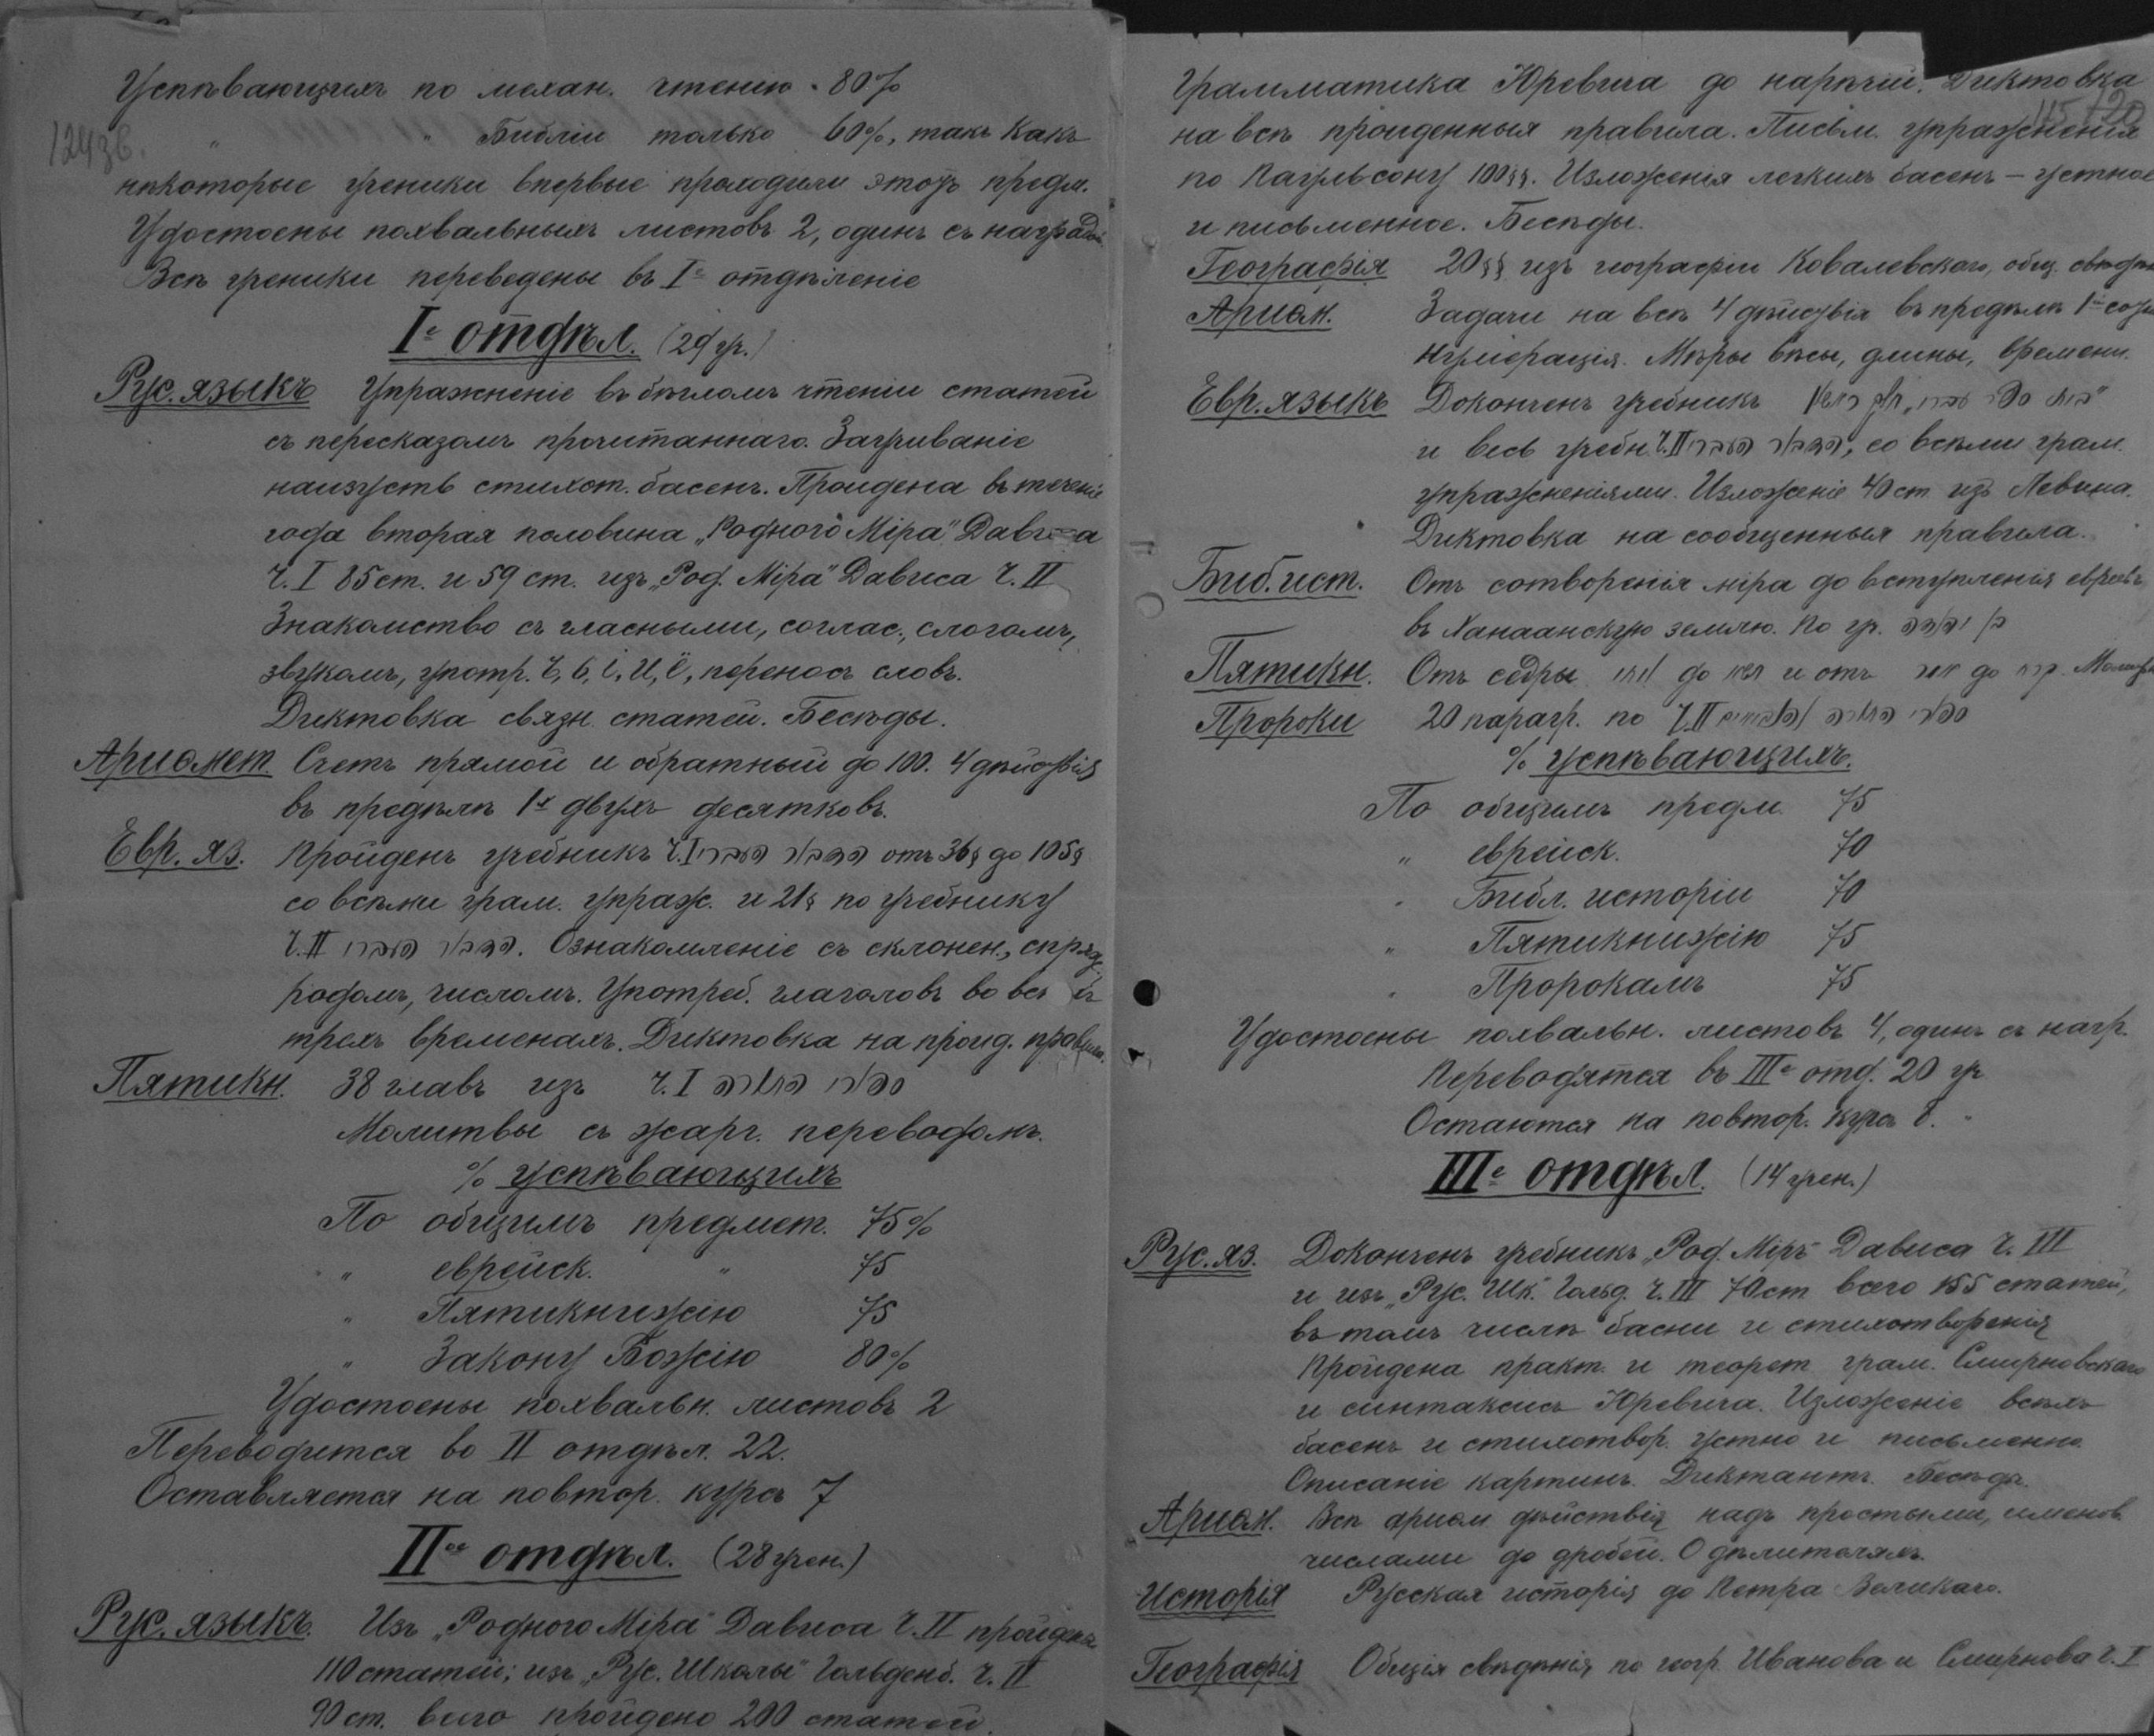 Успѣвающихъ по механ. чтенію - 80%
124зв.
" " Библіи только 60%, такъ какъ
нѣкоторые ученики впервые проходили этотъ предм.
Удостоены похвальныхъ листовъ 2, одинъ съ наградой
Всѣ ученики переведены въ Iе отдѣленіе
Iе отдѣл. (29 уч.)
Рус. языкъ Упражненіе въ бѣгломъ чтеніи статей
съ пересказомъ прочитаннаго. Заучиваніе
наизусть стихот. басенъ. Пройдена въ теченіе
года вторая половина „Родного Міра" Дависа
Ч. I 85 ст. и 59 ст. изъ „Род. Міра" Дависа Ч. II
Знакомство съ гласными, соглас., слогомъ,
звукомъ, употр. Ъ, Ь, і, и, ё, переносъ словъ.
Диктовка связн. статей. Бесѣды.
Ариѳмет. Счетъ прямой и обратный до 100. 4 дѣйствія
въ предѣлѣ 1х двухъ десятковъ.
Евр. яз. Пройденъ учебникъ Ч. I הדבור העברי отъ 36§ до 105§
со всѣми грам. упраж. и 21§ по учебнику
Ч. II הדבור העברי. Ознакомленіе съ склонен., спряж.,
родомъ, числомъ. Употреб. глаголовъ во всѣхъ
трехъ временахъ. Диктовка на пройд. правила.
Пятикн. 38 главъ изъ Ч. I ספרי התורה
Молитвы съ жарг. переводомъ.
% успѣвающихъ
По общимъ предмет. 75%
" еврейск. " 75
" Пятикнижію 75
" Закону Божію 80%
Удостоены похвальн. листовъ 2
Переводится во II отдѣл. 22.
Оставляется на повтор. курсъ 7
IIое отдѣл. (28 учен.)
Рус. языкъ. Изъ „Родного Міра" Дависа Ч. II пройдена
110 статей; изъ „Рус. Школы" Гольденб. Ч. II
90 ст. всего пройдено 200 статей.
Грамматика Юревича до нарѣчій. Диктовка
115 120
на всѣ пройденныя правила. Письм. упражненія
по Паульсону 100§§. Изложенія легкихъ басенъ – устное
и письменное. Бесѣды.
Географія 20§§ изъ географіи Ковалевскаго, общ. свѣдѣн
Ариѳм. Задачи на всѣ 4 дѣйствія въ предѣлѣ 1й сотни
Нумерація. Мѣры вѣсы, длины, времени.
Евр. языкъ Доконченъ учебникъ
и весь учебн. Ч. II הדבור העברי, со всѣми грам.
упражненіями. Изложеніе 40 ст. изъ Левина.
Диктовка на сообщенныя правила.
Биб. ист. Отъ сотворенія міра до вступленія евреевъ
въ Ханаанскую землю. По уч.
Пятикн. Отъ седры до и отъ до
Пророки 20 парагр. по Ч. II
% успѣвающихъ.
По общимъ предм. 75
" еврейск. 70
" Библ. исторіи 70
" Пятикнижію 75
" Пророкамъ 75
Удостоены похвальн. листовъ 4, одинъ съ нагр.
Переводятся въ IIIе отд. 20 уч
Остаются на повтор. курсъ 8.
IIIе отдѣл. (14 учен.)
Рус. яз. Доконченъ учебникъ „Род. Міръ" Дависа Ч. III
и изъ „Рус. Шк." Гольд. Ч. III 70 ст всего 155 статей,
въ томъ числѣ басни и стихотворенія
Пройдена практ. и теорет грам. Смирновскаго
и синтаксисъ Юревича. Изложеніе всѣхъ
басенъ и стихотвор. устно и письменно.
Описаніе картинъ. Диктантъ. Бесѣды.
Ариѳм. Всѣ ариѳм дѣйствія надъ простыми, именов.
числами до дробей. О дѣлителяхъ.
Исторія Русская исторія до Петра Великаго.
Географія Общія свѣдѣнія по геогр. Иванова и Смирнова Ч. I